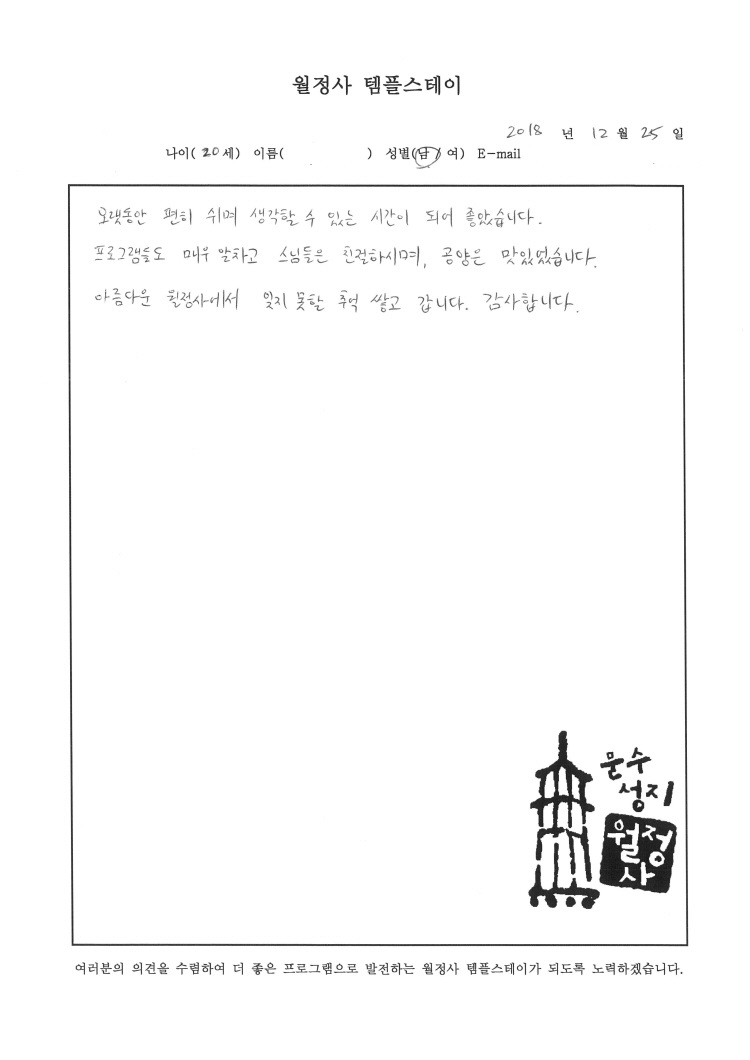 월정사 템플스테이
2018 년 12 월 25 일
나이( 20 세) 이름( ) 성별(남 / 여) E-mail
오랫동안 편히 쉬며 생각할 수 있는 시간이 되어 좋았습니다.
프로그램들도 매우 알차고 스님들은 친절하시며, 공양은 맛있었습니다.
아름다운 월정사에서 잊지 못할 추억 쌓고 갑니다. 감사합니다.
문수
성지
월정
사
여러분의 의견을 수렴하여 더 좋은 프로그램으로 발전하는 월정사 템플스테이가 되도록 노력하겠습니다.